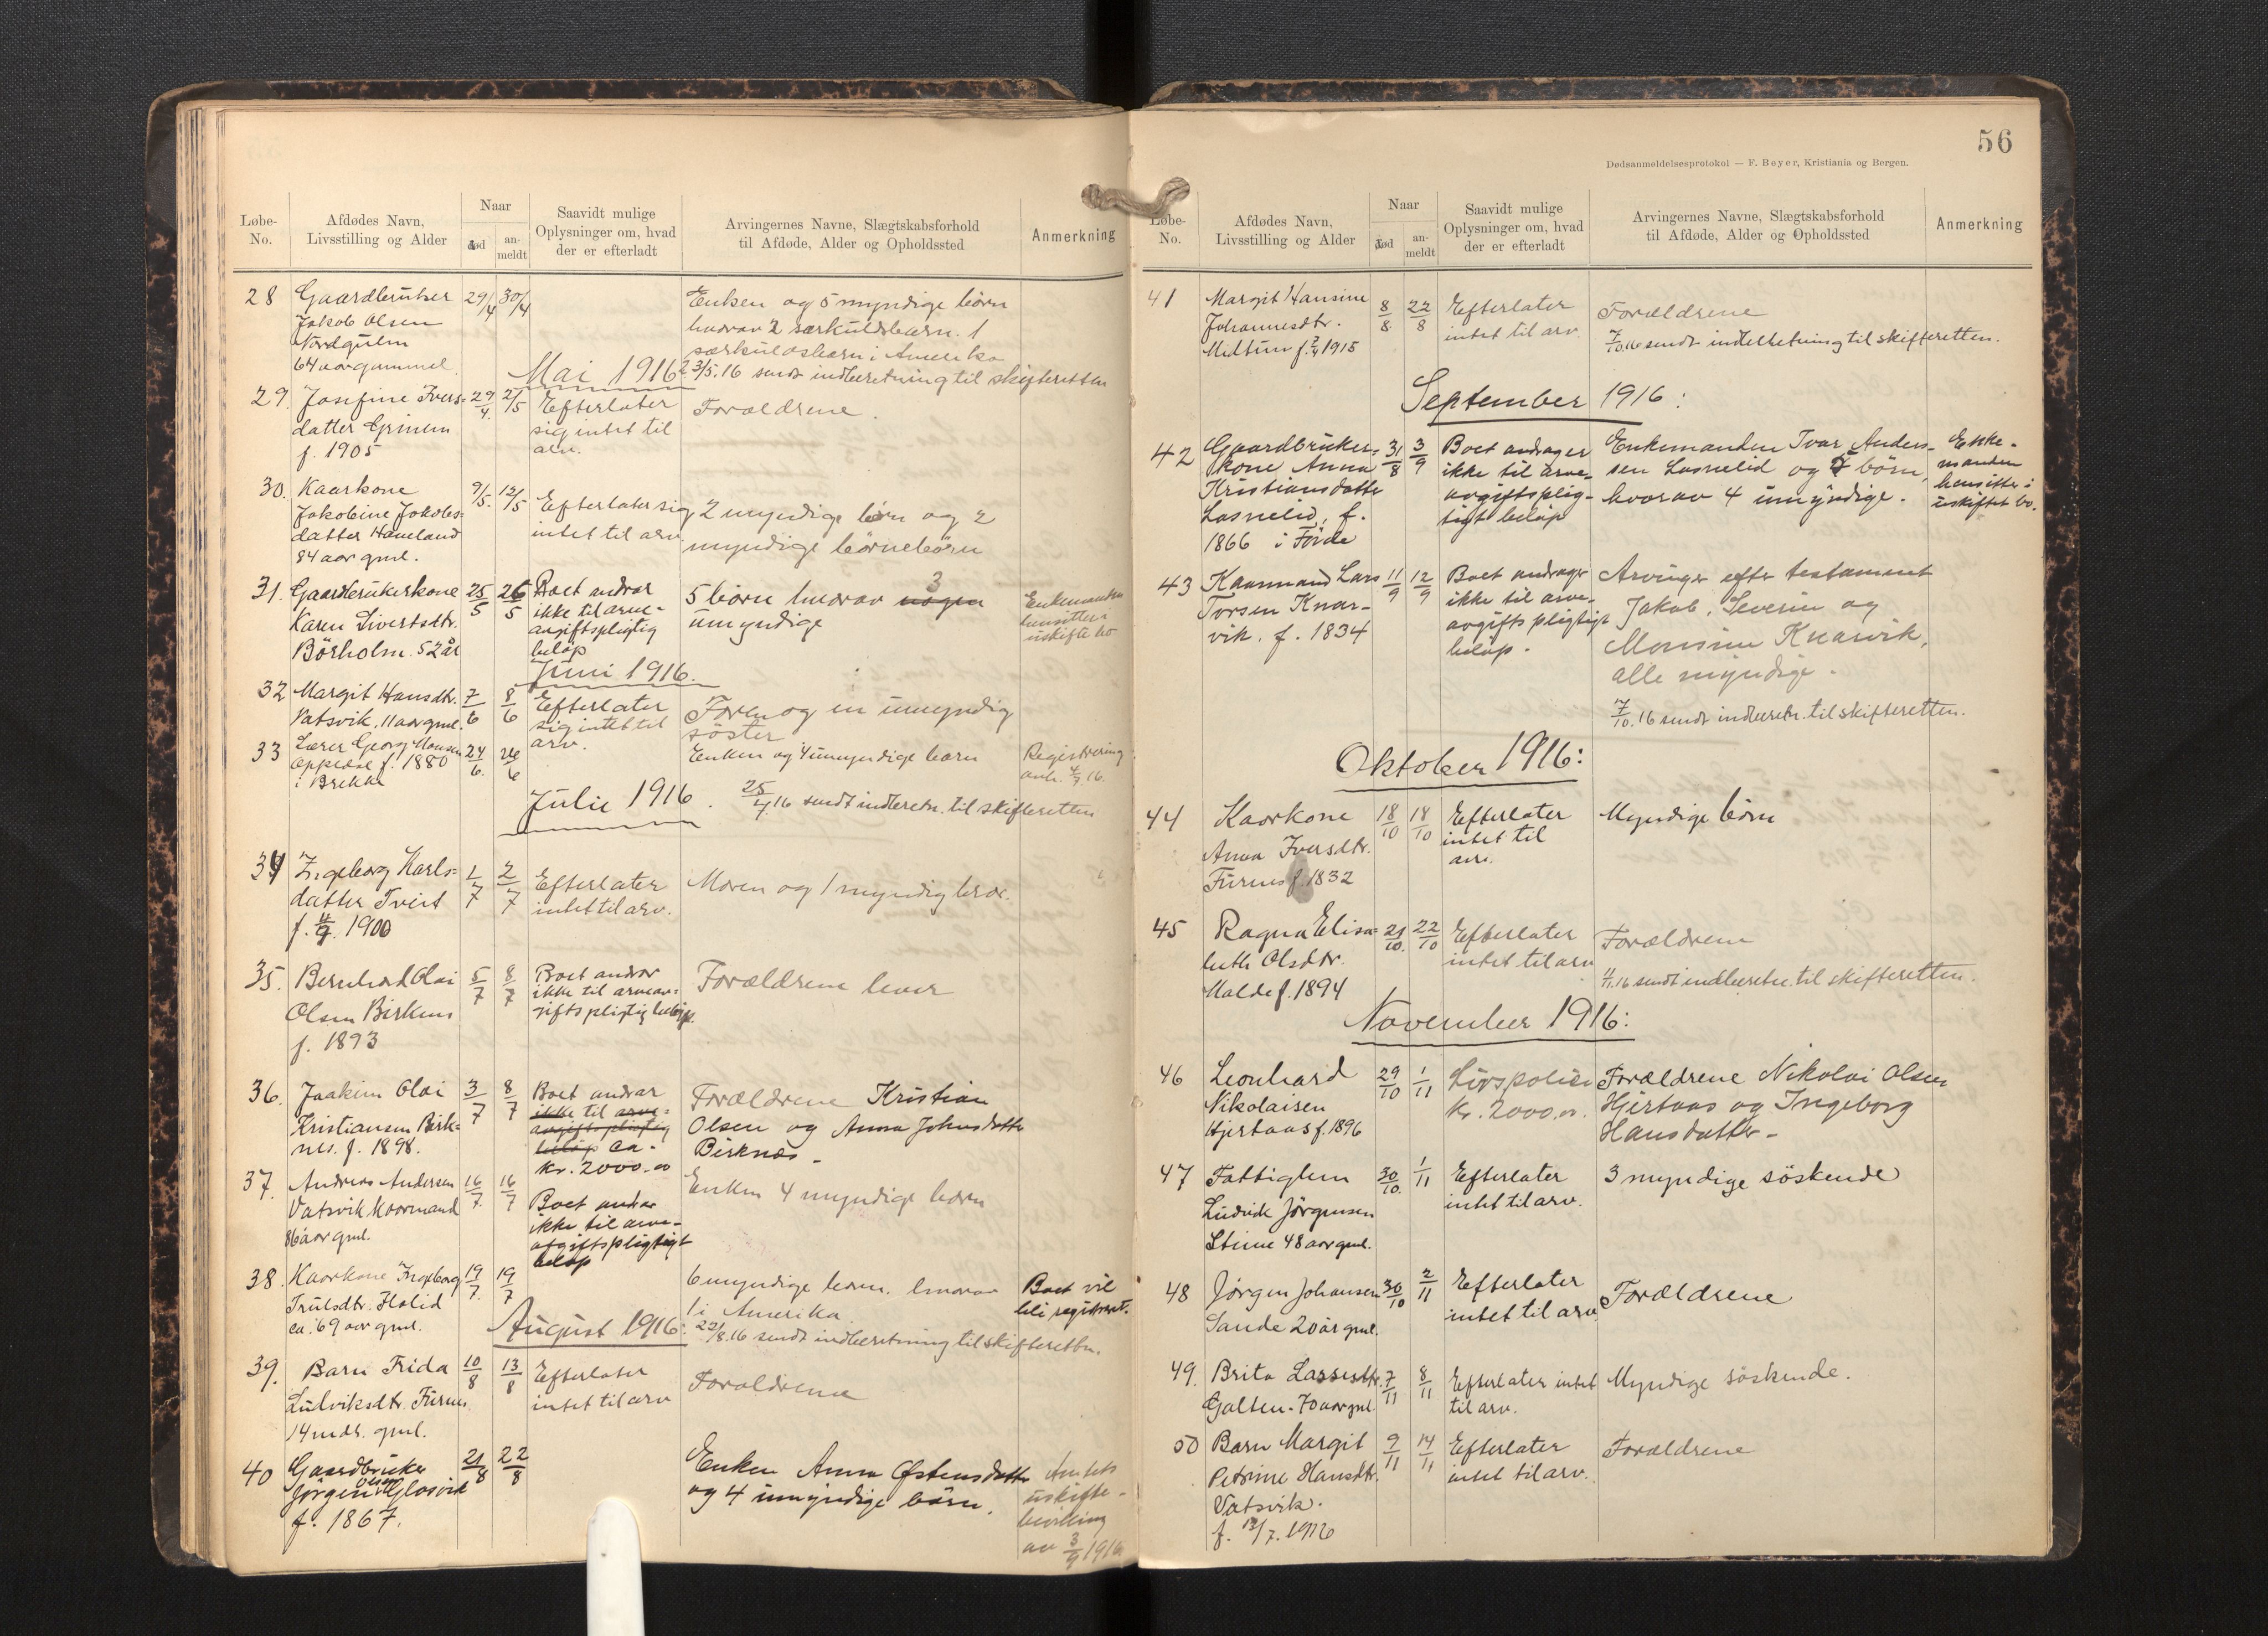 56
Dødsanmeldelsesprotokol — F. Beyer, Kristiania og Bergen.
Løbe-No.
Afdødes Navn, Livsstilling og Alder
Naar
død
an-meldt
Saavidt mulige Oplysninger om, hvad der er efterladt
Arvingernes Navne, Slægtskabsforhold til Afdøde, Alder og Opholdssted
Anmerkning
28 Gaardbruker 29/4 30/4 Enken og 5 myndige børn
Jakob Olsen hvorav 2 særkuldsbarn. 1
Nordgulen særkuldsbarn i Amerika
64 aar gammel
23/5.16 sendt indberetning til skifteretten
Mai 1916
29. Josefine Ivers- 29/4. 2/5 Efterlater Forældrene.
datter Grinem sig intet til
f. 1905 arv.
30. Kaarkone 9/5. 12/5 Efterlater sig 2 myndige børn og 2
Jakobine Jakobs- intet til arv myndige børnebørn
datter Haveland
84 aar gml.
31. Gaardbrukerkone 25/5 26/5 Boet andrar 5 børn hvorav nogen 3 Enkemanden
Karen Sivertsdtr. ikke til arve- umyndige hensitter i
Børholm. 52 år avgiftspligtig uskifte bo
beløp
Juni 1916.
32 Margit Hansdtr. 7/6 8/6 Efterlater Faren og en umyndig
Vatsvik. 11 aar gml. sig intet til søster
arv.
33 Lærer Georg Monsen 24/6. 26/6 Enken og 4 umyndige barn Registrering
Oppedal f. 1880 anh. 4/7.16.
i Brekke
25/7.16 sendt indberetn. til skifteretten
Julie 1916.
34 Ingeborg Karls- 1/7 2/7 Efterlater Moren og 1 myndig bror.
datter Tveit intet til arv.
f. 4/9. 1900
35. Bernhard Olai 5/7 8/7 Boet andrar Forældrene lever
Olsen Birknes ikke til arveav-
f. 1893 giftspligtig beløp.
36. Joakim Olai 3/7 8/7 Boet andrar Forældrene Kristian
Kristiansen Birk- ikke til arve- Olsen og Anna Johnsdatter
nes. f. 1898. avgiftspligtig Birknes
beløp ca.
kr. 2000.00
37. Andreas Andersen 16/7. 16/7 Boet andrar Enken 4 myndige barn
Vatsvik kaarmand ikke til arve-
86 aar gml. afgiftspligtigt
beløp
38. Kaarkone Ingeborg 19/7. 19/7 6 myndige barn. hvorav Boet vil
Trulsdtr. Halid 1 i Amerika bli registrert.
ca. 69 aar gml.
22/8.16 sendt indberetning til skifteretten.
August 1916:
39. Barn Frida 10/8 13/8 Efterlater Forældrene
Ludviksdtr. Furnes. intet til arv
14 mdr. gml.
40 Gaardbruker 21/8 22/8 Enken Anna Østensdatter Amtets
Jørgen Olsen Glosvik og 4 umyndige børn. uskifte-
f. 1867. bevilling
av 3/9 1916
Løbe-No.
Afdødes Navn, Livsstilling og Alder
Naar
død
an-meldt
Saavidt mulige Oplysninger om, hvad der er efterladt
Arvingernes Navne, Slægtskabsforhold til Afdøde, Alder og Opholdssted
Anmerkning
41 Margit Hansine 8/8. 22/8 Efterlater Forældrene
Johannesdtr. intet til arv.
Midtun f. 2/4 1915
7/10.16 sendt indberetning til skifteretten.
September 1916:
42 Gaardbruker- 31/8 3/9 Boet andrager Enkemanden Ivar Anders- Enke-
kone Anna ikke til arve- sen Lasnelid og 7 børn, manden
Kristiansdatter avgiftsplig- hvorav 4 umyndige. hensitter i
Lasnelid, f. tigt beløp uskiftet bo.
1866 i Førde
43 Kaarmand Lars 11/9 12/9 Boet andrager Arvinger efter testament
Torsen Knar- ikke til arve- Jakob, Severin og
vik. f. 1834 avgiftspligtigt Monsine Knarvik,
beløp. alle myndige.
7/10.16 sendt indberetn. til skifteretten.
Oktober 1916:
44 Kaarkone 18/10 18/10 Efterlater Myndige børn
Anna Iversdtr. intet til
Furnes f. 1832 arv.
45 Ragna Elisa- 21/10. 22/10 Efterlater Forældrene
beth Olsdtr. intet til arv
Halde f. 1894
4/11.16 sendt indberetn. til skifteretten.
November 1916:
46 Leonhard 29/10 1/11 Livspolise Forældrene Nikolai Olsen
Nikolaisen kr. 2000.00. Hjertaas og Ingeborg
Hjertaas f. 1896 Hansdatter
47 Fattiglem 30/10. 1/11 Efterlater 3 myndige søskende
Ludvik Jørgensen intet til arv.
Stine 48 aar gml.
48 Jørgen Johansen 30/10 2/11 Efterlater Forældrene
Sande 20 år gml. intet til arv
49. Brita Lassesdtr. 7/11 8/11 Efterlater intet Myndige søskende.
Galten. 70 aar gml. til arv.
50 Barn Margit 9/11 14/11 Efterlater Forældrene
Petrine Hansdtr. intet til arv.
Vatsvik.
f. 12/7. 1916